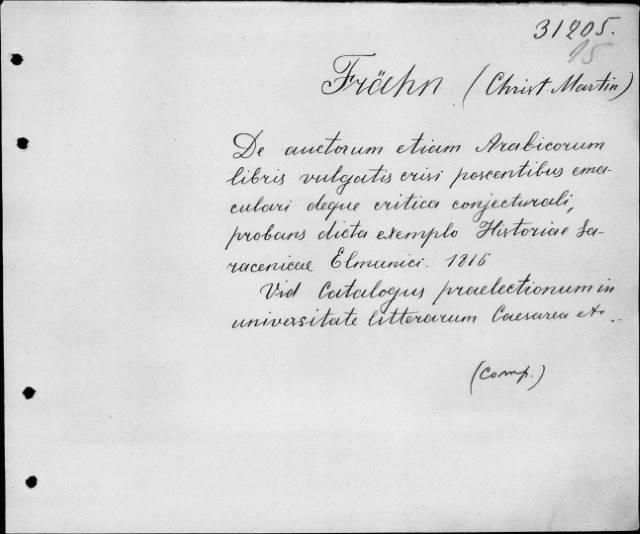 31205.
15
Frähn (Christ. Martin)
De auctorum etiam Arabicorum
libris vulgatis crisi poscentibus ema-
culari deque critica conjecturali,
probans dicta exemplo Historiae Sa-
racenicae Elmanici. 1815
Vid Catalogus praelectionum in
universitate litterarum Caesarea etc.
(Comp.)